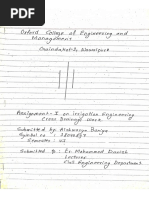 Oxford College of Engineering and
Management
Gaindakot-2, Nawalpur
Assignment-I on Irrigation Engineering
Cross Drainage Work
Submitted by: Aishwarya Baniya
Symbol no :
Semester : VI
Submitted to : Er. Mohammad Danish
Lecturer
Civil Engineering Department